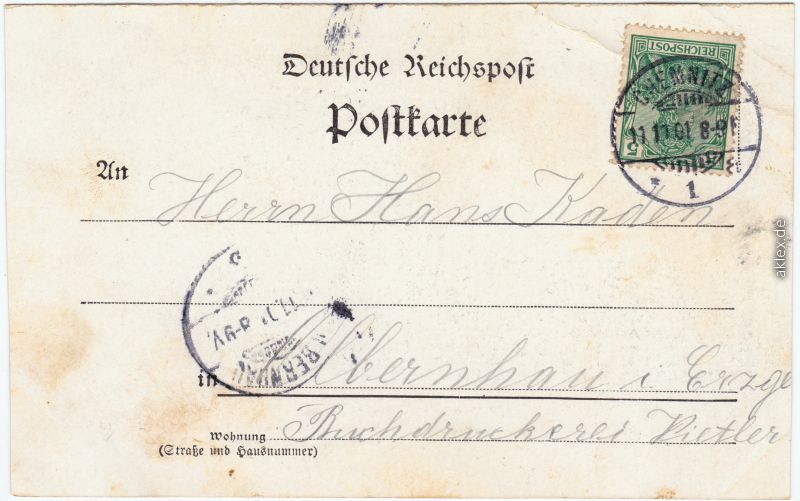 Deutsche Reichspost
Postkarte
REICHSPOST
5
CHEMNITZ
11 11 01 8-9
* 1
An Herrn Hans Kaden
8-9V.
in Olbernhau i Erzge
Wohnung
(Straße und Hausnummer)
Buchdruckerei
aklex.de